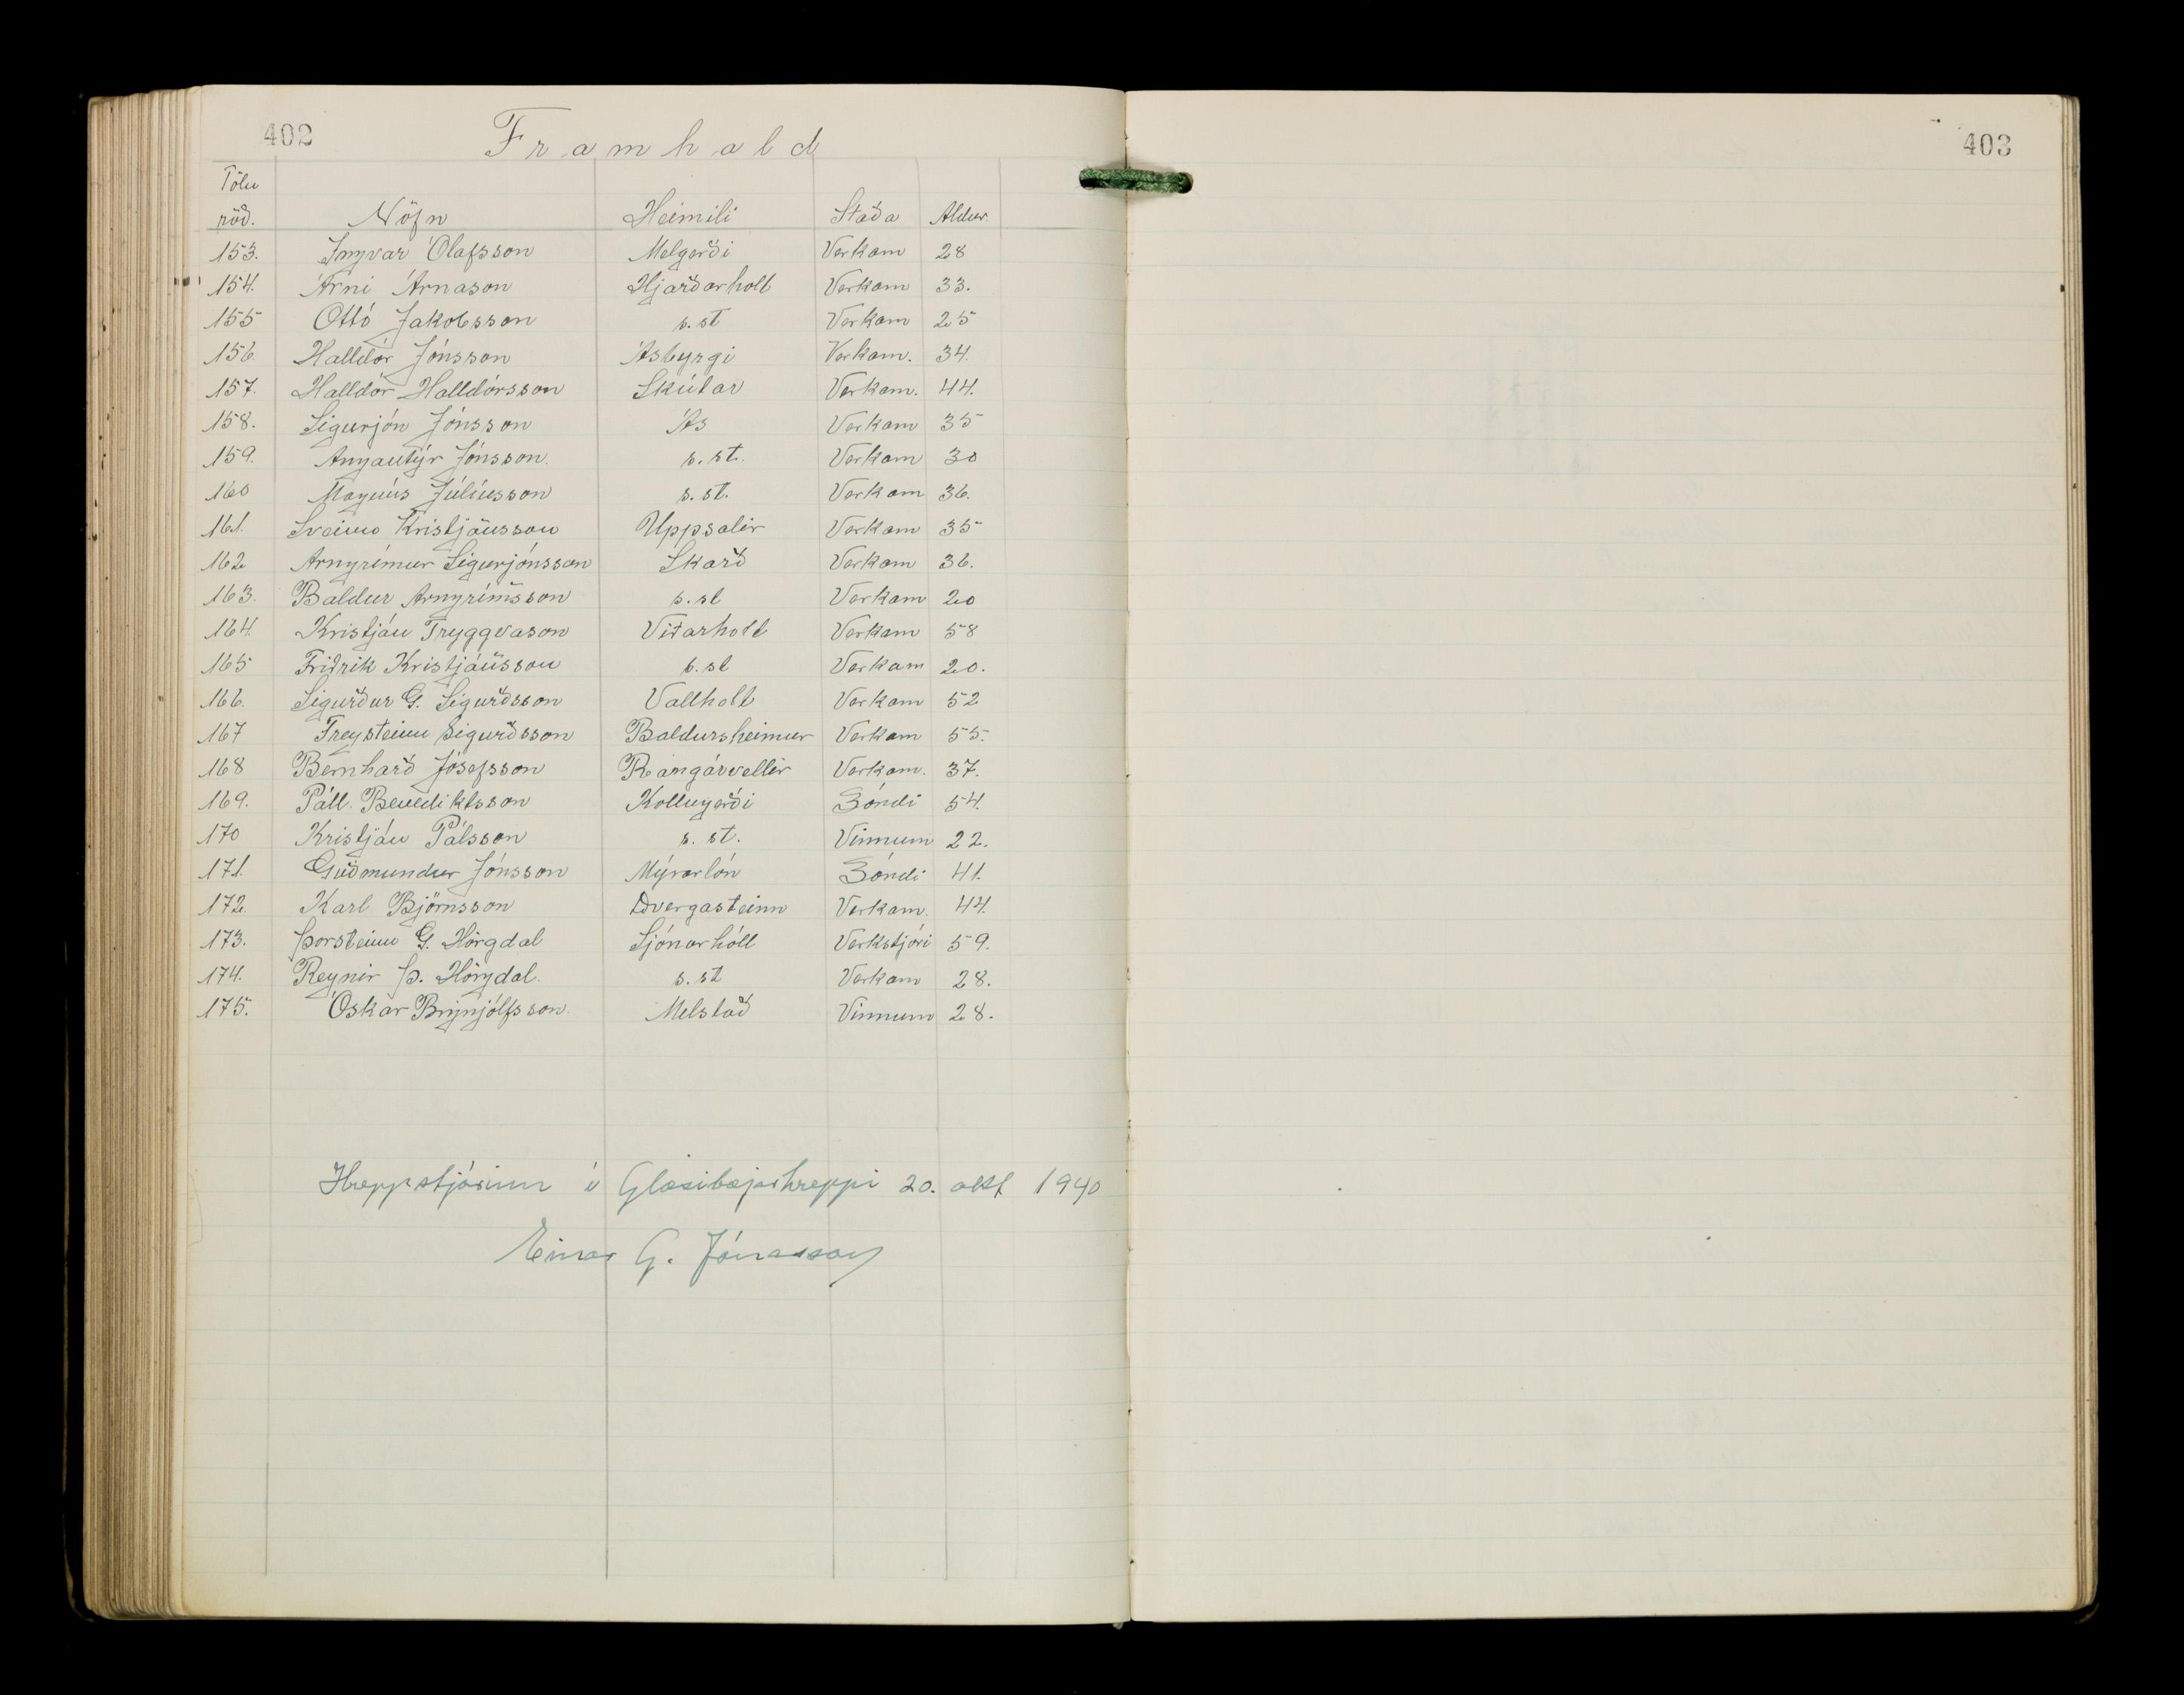 402
Framhald
Tölu
röð. Nöfn Heimili Staða Aldur.
153. Ingvar Ólafsson Melgerði Verkam 28
154. Árni Árnason Hjarðarholt Verkam 33.
155 Ottó Jakobsson s.st Verkam 25
156. Halldór Jónsson Ásbyrgi Verkam. 34.
157. Halldór Halldórsson Skútar Verkam. 44.
158. Sigurjón Jónsson Ás Verkam 35
159. Angantýr Jónsson. s.st. Verkam 30
160 Magnús Júlíusson s.st. Verkam 36.
161. Sveinn Kristjánsson Uppsalir Verkam 35
162 Arngrímur Sigurjónsson Skarð Verkam 36.
163. Baldur Arngrímsson s.st Verkam 20
164. Kristján Tryggvason Viðarholt Verkam 58
165 Friðrik Kristjánsson s.st Verkam 20.
166. Sigurður G. Sigurðsson Vallholt Verkam 52
167 Freysteinn Sigurðsson Baldursheimur Verkam 55.
168 Bernharð Jósefsson Rangárvellir Verkam. 37.
169. Páll. Benediktsson Kollugerði Bóndi 54.
170 Kristján Pálsson s. st. Vinnum 22.
171. Guðmundur Jónsson Mýrarlón Bóndi 41.
172. Karl Björnsson Dvergasteinn Verkam. 44.
173. Þorsteinn G. Hörgdal Sjónarhóll Verkstjóri 59.
174. Reynir Þ. Hörgdal. s. st Verkam 28.
175. Óskar Brynjólfsson. Melstað Vinnum 28.
Hreppstjórinn í Glæsibæjarhreppi 20. okt 1940
Einar G. Jónasson
403